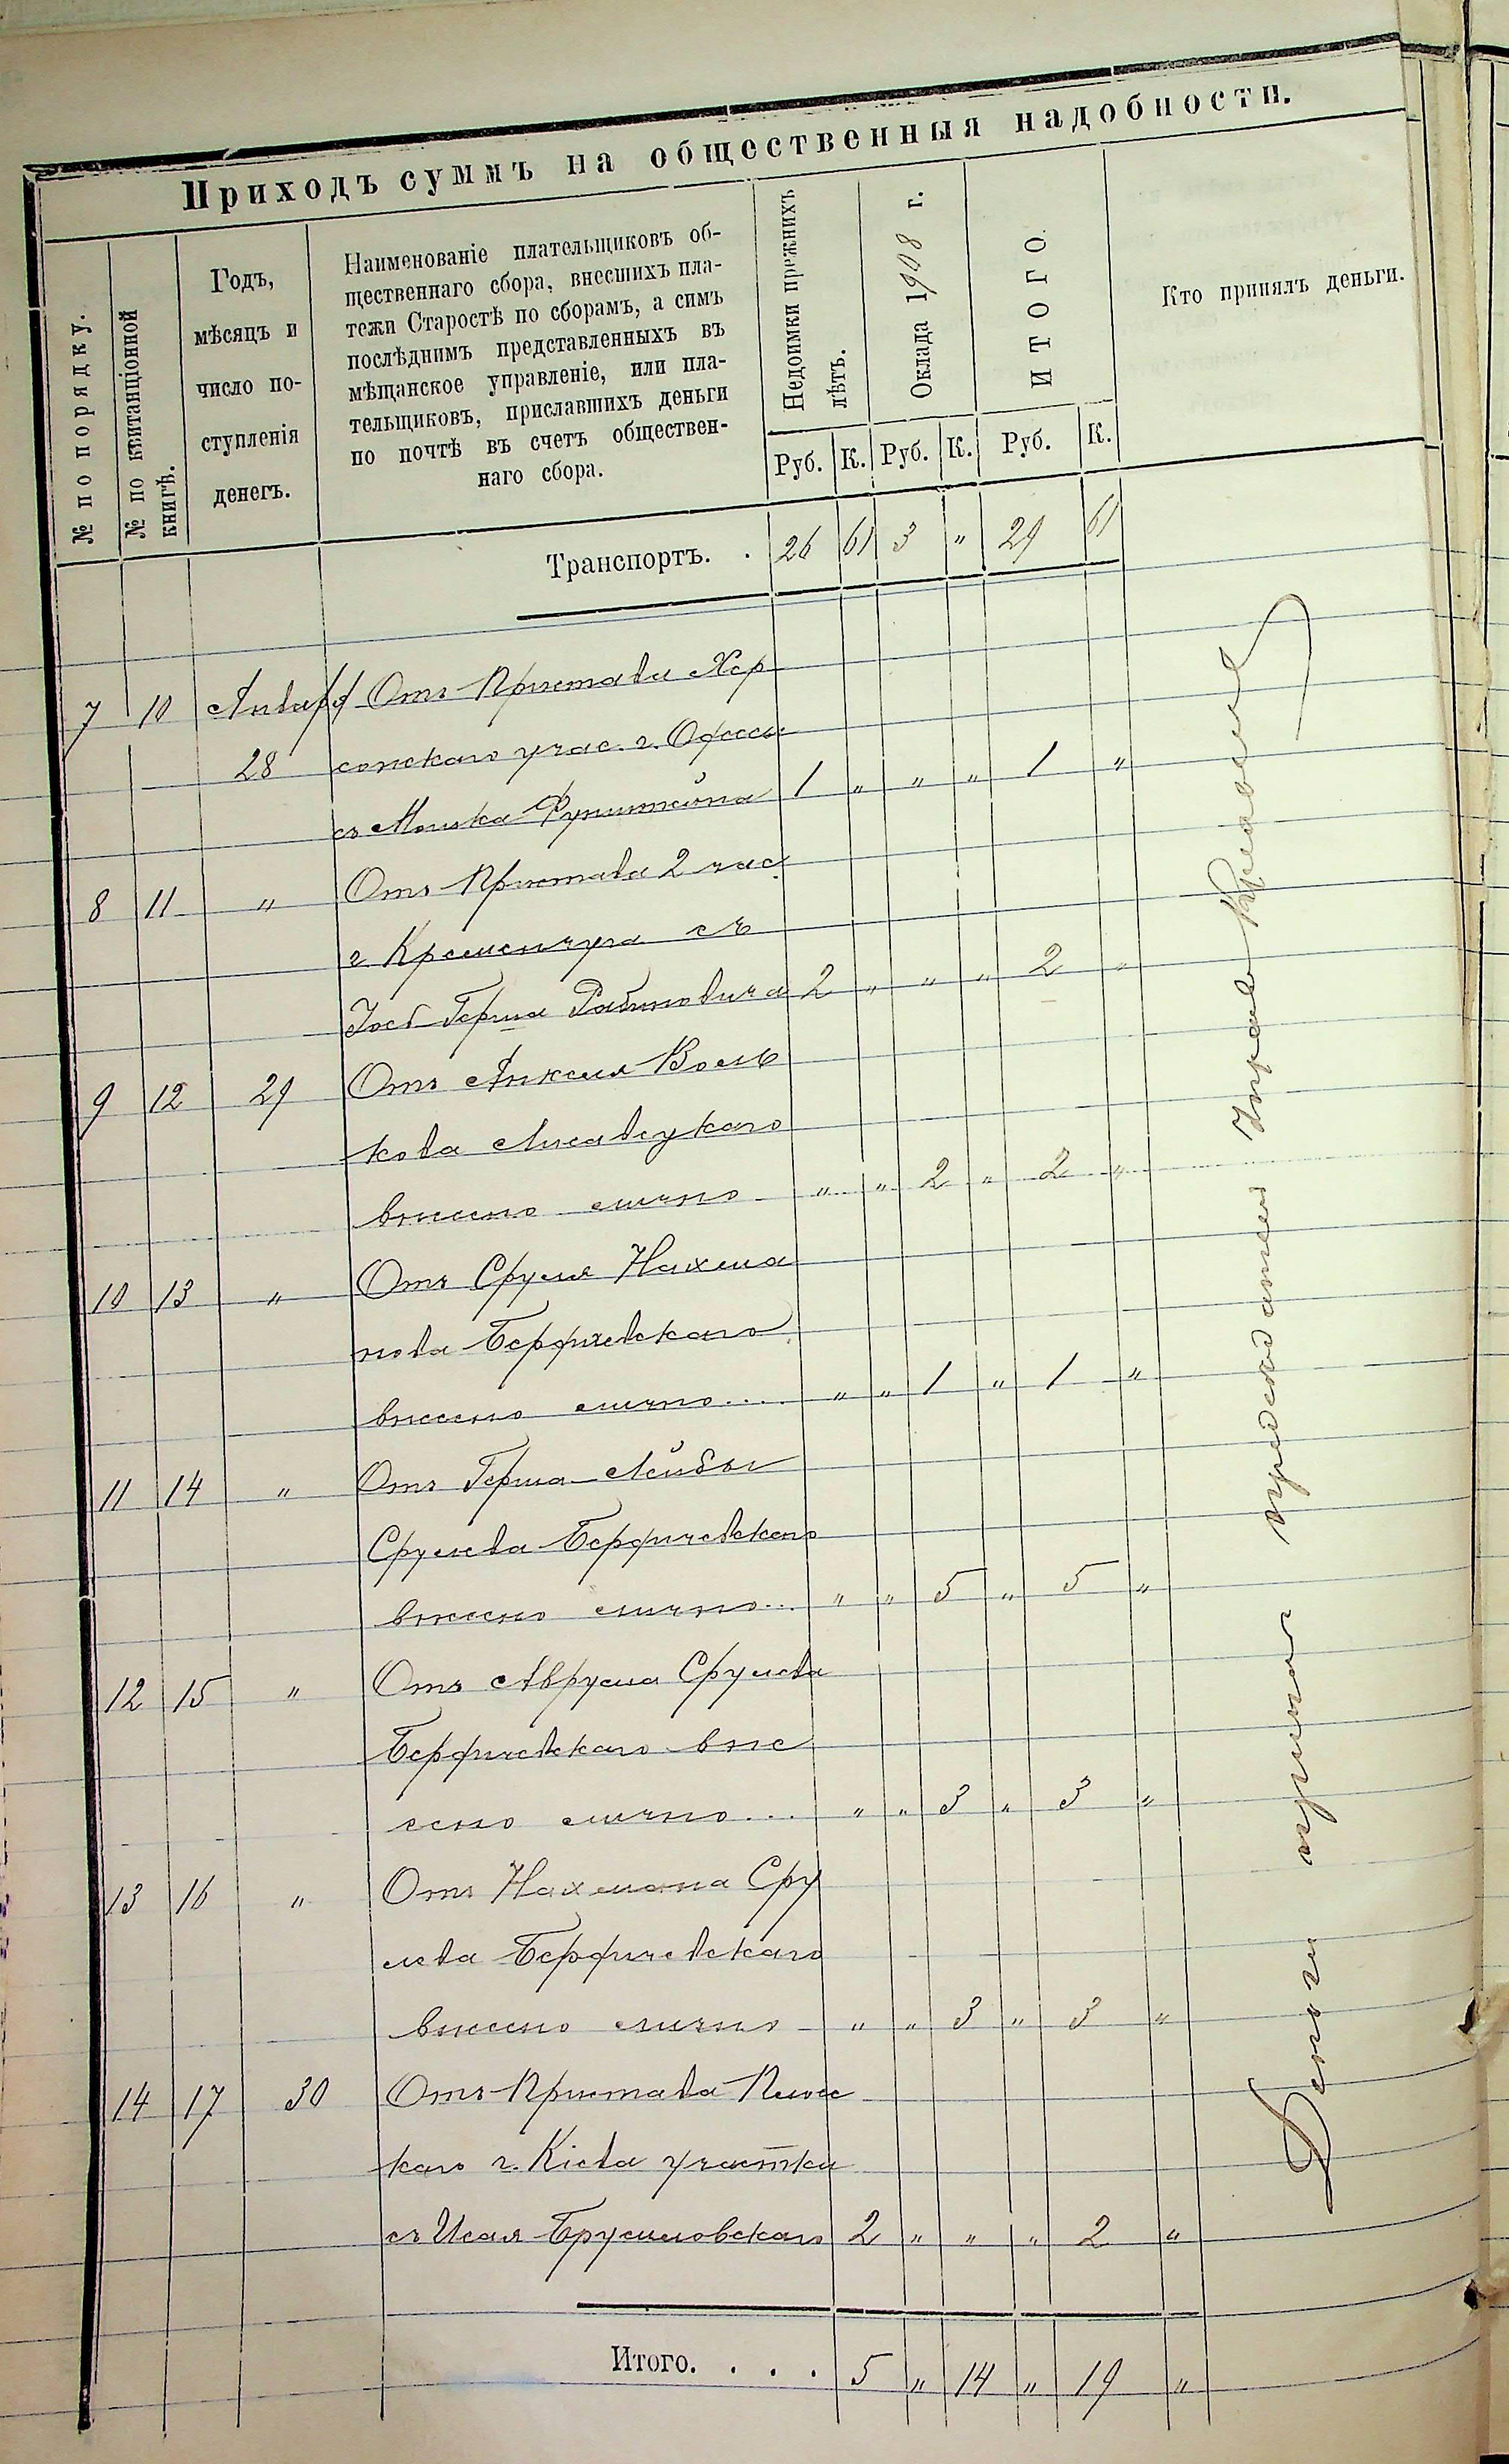 Приходъ суммъ на общественныя надобности.
№ по порядку.
№ по квитанціонной
книгѣ.
Годъ,
мѣсяцъ и
число по-
ступленія
денегъ.
Наименованіе плательщиковъ об-
щественнаго сбора, внесшихъ пла-
тежи Старостѣ по сборамъ, а симъ
послѣднимъ представленныхъ въ
мѣщанское управленіе, или пла-
тельщиковъ, приславшихъ деньги
по почтѣ въ счетъ обществен-
наго сбора.
Недоимки прежнихъ
лѣтъ.
Оклада 1908 г.
ИТОГО.
Кто принялъ деньги.
Руб. К. Руб. К. Руб. К.
Транспортъ. . 26 61 3 " 29 61
7 10 Января Отъ Пристава Хер
28 сонскаго учас. г. Одессы
съ Мошка 1 " " " 1 "
8 11 " Отъ Пристава 2 час.
г Кременчуга съ
Іосъ-Герша Рабиновича 2 " " " 2 "
9 12 29 Отъ Анкеля Воль
кова Лисавецкаго
внесено лично " " 2 " 2 "
10 13 " Отъ Сруля Нахма
нова Бердичевскаго
внесено лично.... " " 1 " 1 "
11 14 " Отъ Герша-Лейбы
Срулева Бердичевскаго
внесено лично... " " 5 " 5 "
12 15 " Отъ Аврума Срулева
Бердичевскаго вне
сено лично... " " 3 " 3 "
13 16 " Отъ Нахмана Сру
лева Бердичевскаго
внесено лично " " 3 " 3 "
14 17 30 Отъ Пристава Плос
каго г. Кіева участка
съ Исая Брусиловскаго 2 " " " 2 "
Итого. . . . 5 " 14 " 19 "
Деньги принялъ предсѣдатель Управы